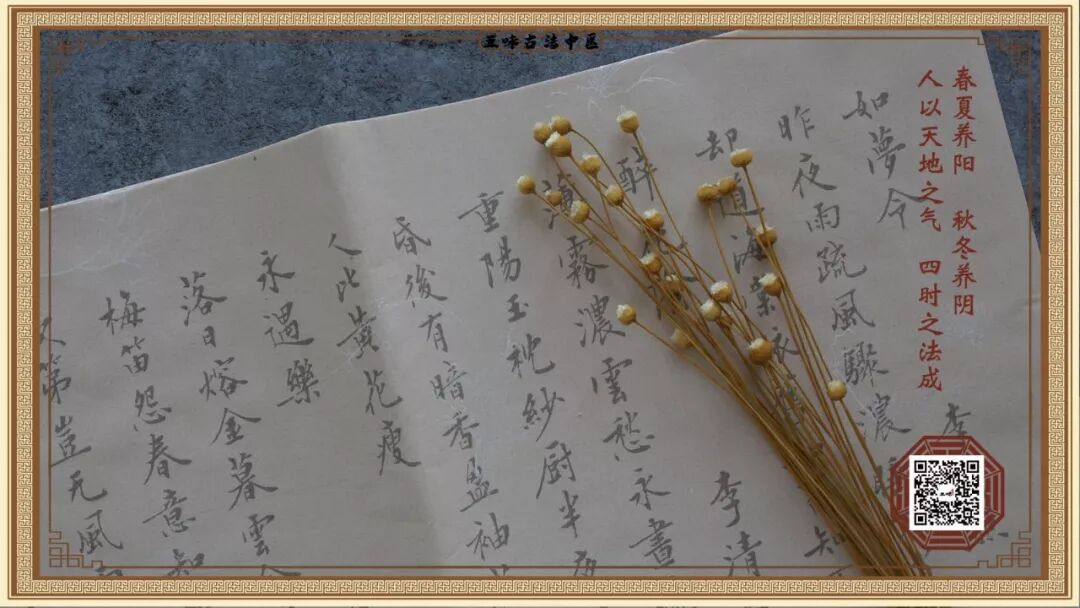 亖味古法中医
春夏养阳 秋冬养阴
人以天地之气 四时之法成
李
如夢令
昨夜雨疏風驟濃
知
却道海棠依舊
李清
醉花
薄霧濃雲愁永晝
重陽玉枕紗廚半夜
昏後有暗香盈袖
人比黃花瘦
永遇樂
落日熔金暮雲
梅笛怨春意知
次第豈无風